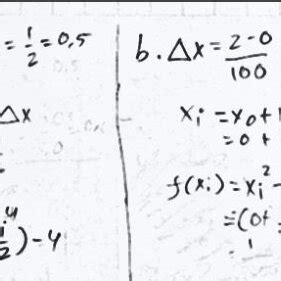 = 1/2 = 0,5
Δx
4
/2) - 4
b. Δx = 2-0/100
xᵢ = x₀ +
= 0 +
f(xᵢ) = xᵢ² -
= (0+